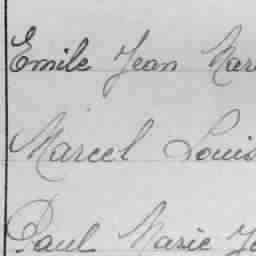 Emile Jean Mar
Marcel Louis
Paul Marie J